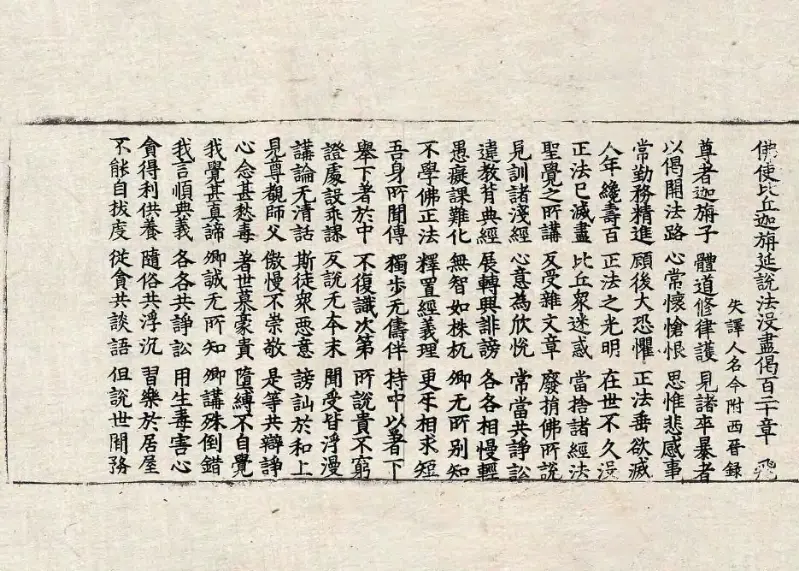 佛使比丘迦旃延說法沒盡偈百二十章 飛
失譯人名今附西晉錄
尊者迦旃子 體道修律護 見諸卒暴者
以偈開法路 心常懷愴恨 思惟悲感事
常勤務精進 顧後大恐懼 正法垂欲滅
人年纔壽百 正法之光明 在世不久沒
正法已滅盡 比丘眾迷惑 當捨諸經法
聖覺之所講 反受雜文章 廢捐佛所說
見訓諸淺經 心意為欣悅 常當共諍訟
違教背典經 展轉興誹謗 各各相慢輕
愚癡課難化 無智如株杌 卿无所別知
不學佛正法 釋置經義理 更乑相求短
吾身所聞傳 獨步无儔伴 持中以著下
舉下著於中 不復識次第 所說貴不窮
證處設乖課 反說无本末 聞受皆浮漫
講論无清話 斯徒眾惡意 謗訕於和上
見尊覩師父 傲慢不崇敬 是等共辯諍
心念甚愁毒 著世慕豪貴 墮縛不自覺
我覺甚真諦 卿誠无所知 卿講殊倒錯
我言順典義 各各共諍訟 用生毒害心
貪得利供養 隨俗共浮沉 習樂於居屋
不能自拔度 從貪共談語 但說世間務